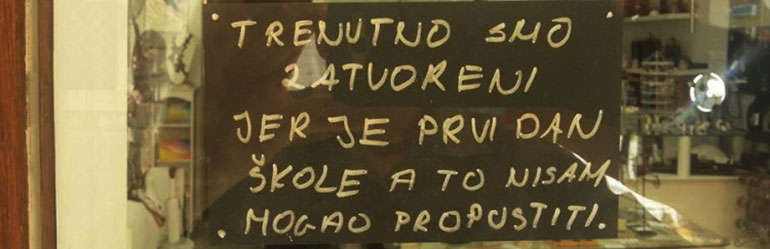 TRENUTNO SMO
ZATVORENI
JER JE PRVI DAN
ŠKOLE A TO NISAM
MOGAO PROPUSTITI.